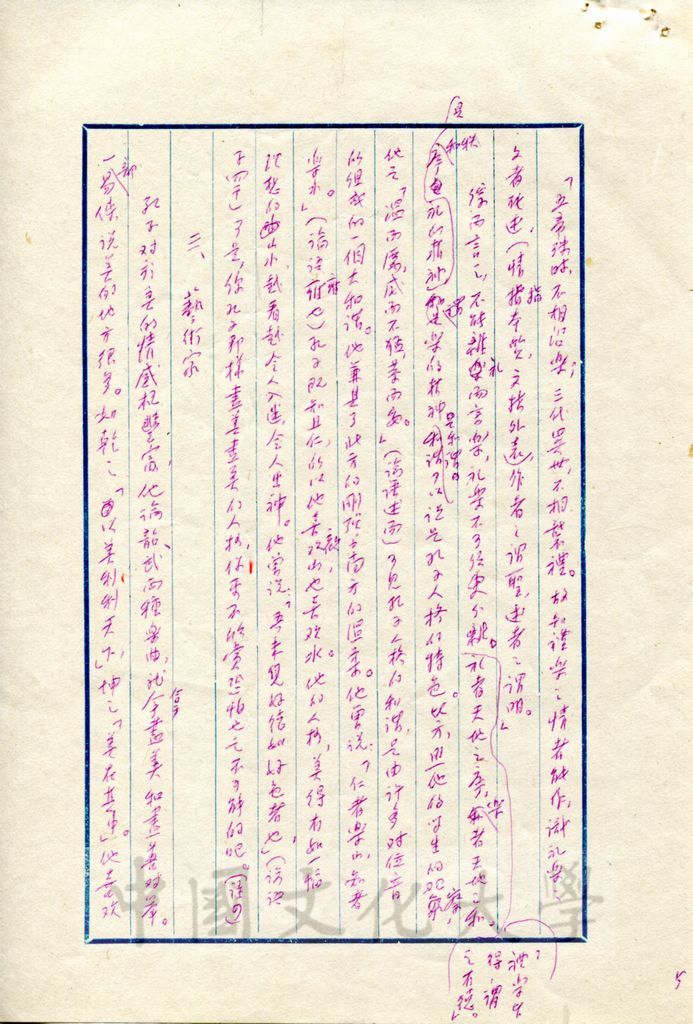 「五帝殊時，不相沿樂；三代異世，不相襲禮。故知禮樂之情者能作，識禮樂之
文者能述，（情指本質，文指外表）作者之謂聖，述者之謂明。」
綜而言之，不能離禮而言樂，礼樂不可從與分離。礼者天地之序，樂者天地之和，
秩和
且
孔子精神
樂的精神
是和諧的
可以説是孔子人格的特色
他的学生的観察
他之「温而厲，威而不猛，恭而安。」（論語述而）可見孔子人格的和諧，是由許多对位音
所組成的一個大和諧。他兼具了北方的剛強与南方的温柔。他曾説：「仁者樂山，知者
樂水。」（論語雍也）孔子既知且仁，所以他喜歡山也喜欢水，他的人格，美得有如一幅
理想的山水，越看越令人入迷，令人出神。他嘗説：「吾未見好德如好色者也」（論語
子罕）可是，像孔子那様盡善盡美的人格，你要不欣赏，恐怕也是不可能的吧。（註四）
三、藝術家
孔子对於美的情感極豐富，他論韶、武两種樂曲，就会盡美和盡善对舉。
一部易傳，説美的地方很多。如乾之「以美利利天下，」坤之「美在其中」他喜欢
「禮樂皆
得，謂
之有德。」
5
中國文化大學